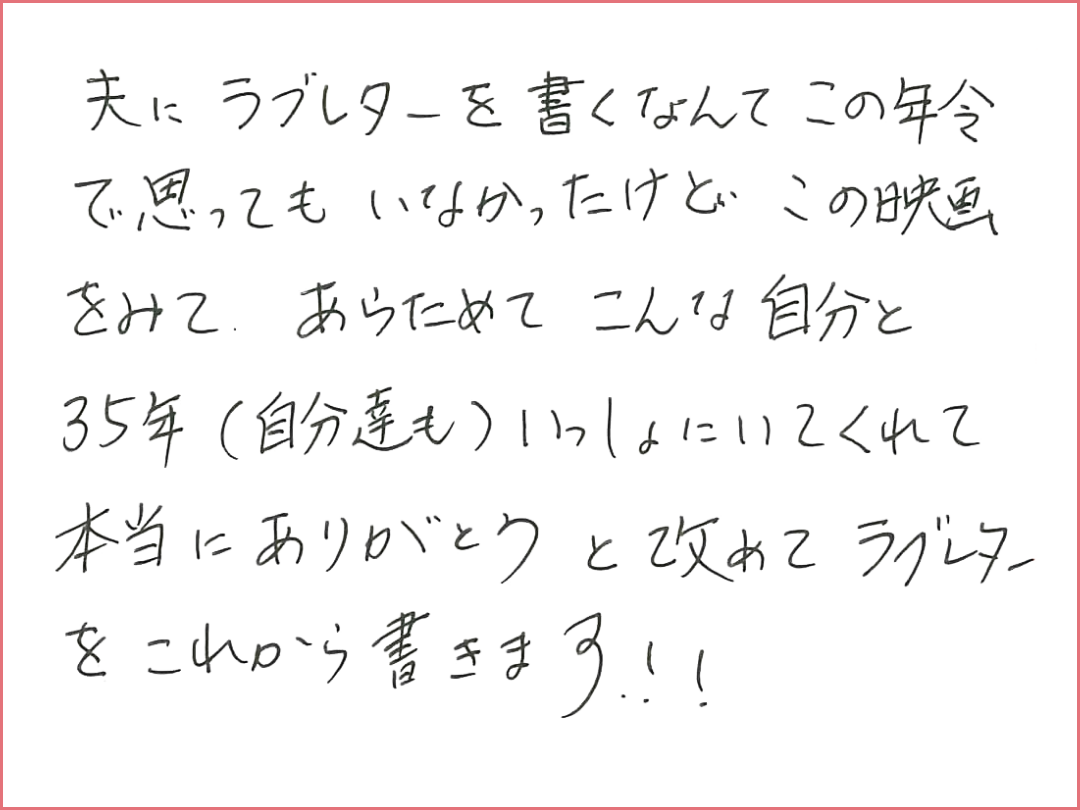 夫にラブレターを書くなんてこの年令
で思ってもいなかったけどこの映画
をみて、あらためてこんな自分と
35年(自分達も)いっしょにいてくれて
本当にありがとうと改めてラブレター
をこれから書きます!!